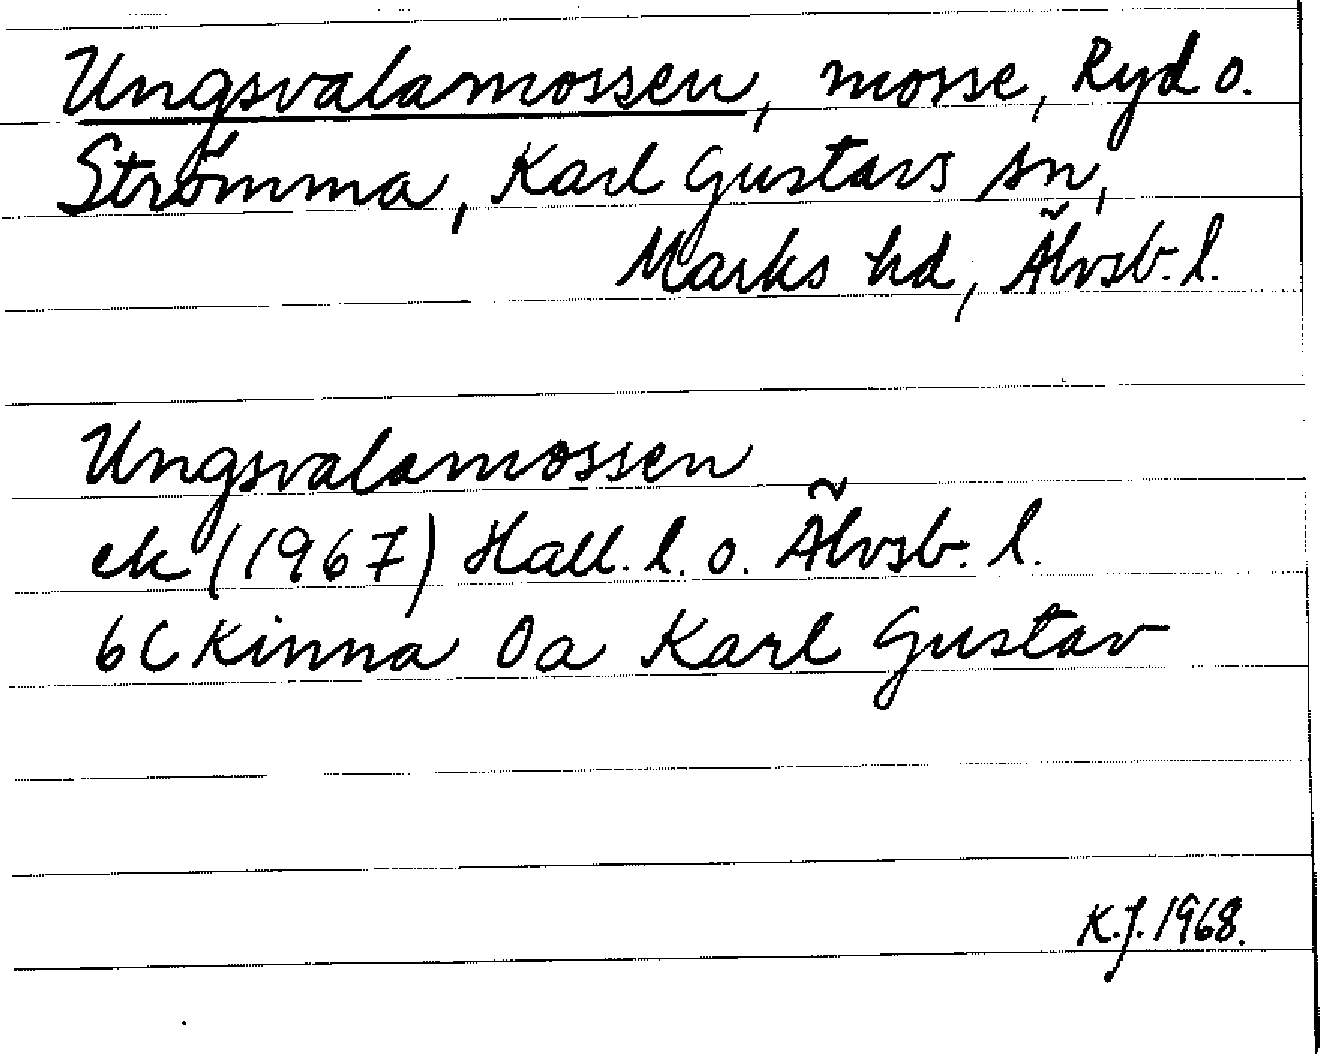 Ungsvalamossen, mosse, Ryd o.
Strömma, Karl Gustavs sn,
Marks hd, Älvsb. l.
Ungsvalamossen
ek (1967) Hall. l. o. Älvsb. l.
6C Kinna 0a Karl Gustav
K.J. 1968.